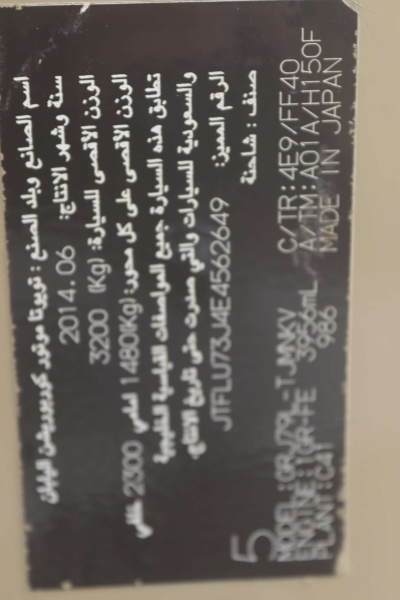 اسم الصانع وبلد الصنع : تويوتا موتور كوربوريشن اليابان
سنة وشهر الانتاج: 2014.06
الوزن الاقصى للسيارة: (Kg) 3200
الوزن الاقصى على كل محور:(Kg)1480 امامي 2300 خلفي
تطابق هذه السيارة جميع المواصفات القياسية الخليجية
والسعودية للسيارات والتي صدرت حتى تاريخ الانتاج.
الرقم المميز: JTFLU73J4E4562649
صنف : شاحنة
5
MODEL:GRJ79L-TJMNKV C/TR:4E9/FF40
ENGINE:1GR-FE 3956mL A/TM:A01A/H150F
PLANT:C41 986 MADE IN JAPAN